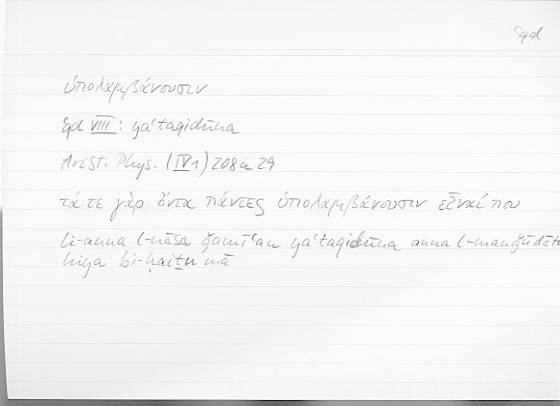 ʿqd
ὑπολαμβάνουσιν
ʿqd VIII: yaʿtaqidūna
Arist. Phys. (IV 1) 208 a 29
τά τε γὰρ ὄντα πάντες ὑπολαμβάνουσιν εἶναί που
li-anna l-nāsa ǧamīʿan yaʿtaqidūna anna l-mauǧūdāt
hiya bi-ḥaiṯu mā